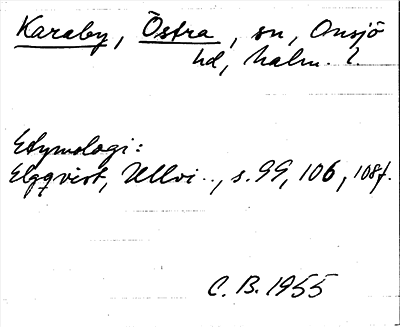 Karaby, Östra, sn, Onsjö
hd, Malm. l.
Etymologi:
Elgqvist, Ullvi.., s. 99, 106, 108f.
C. B. 1955